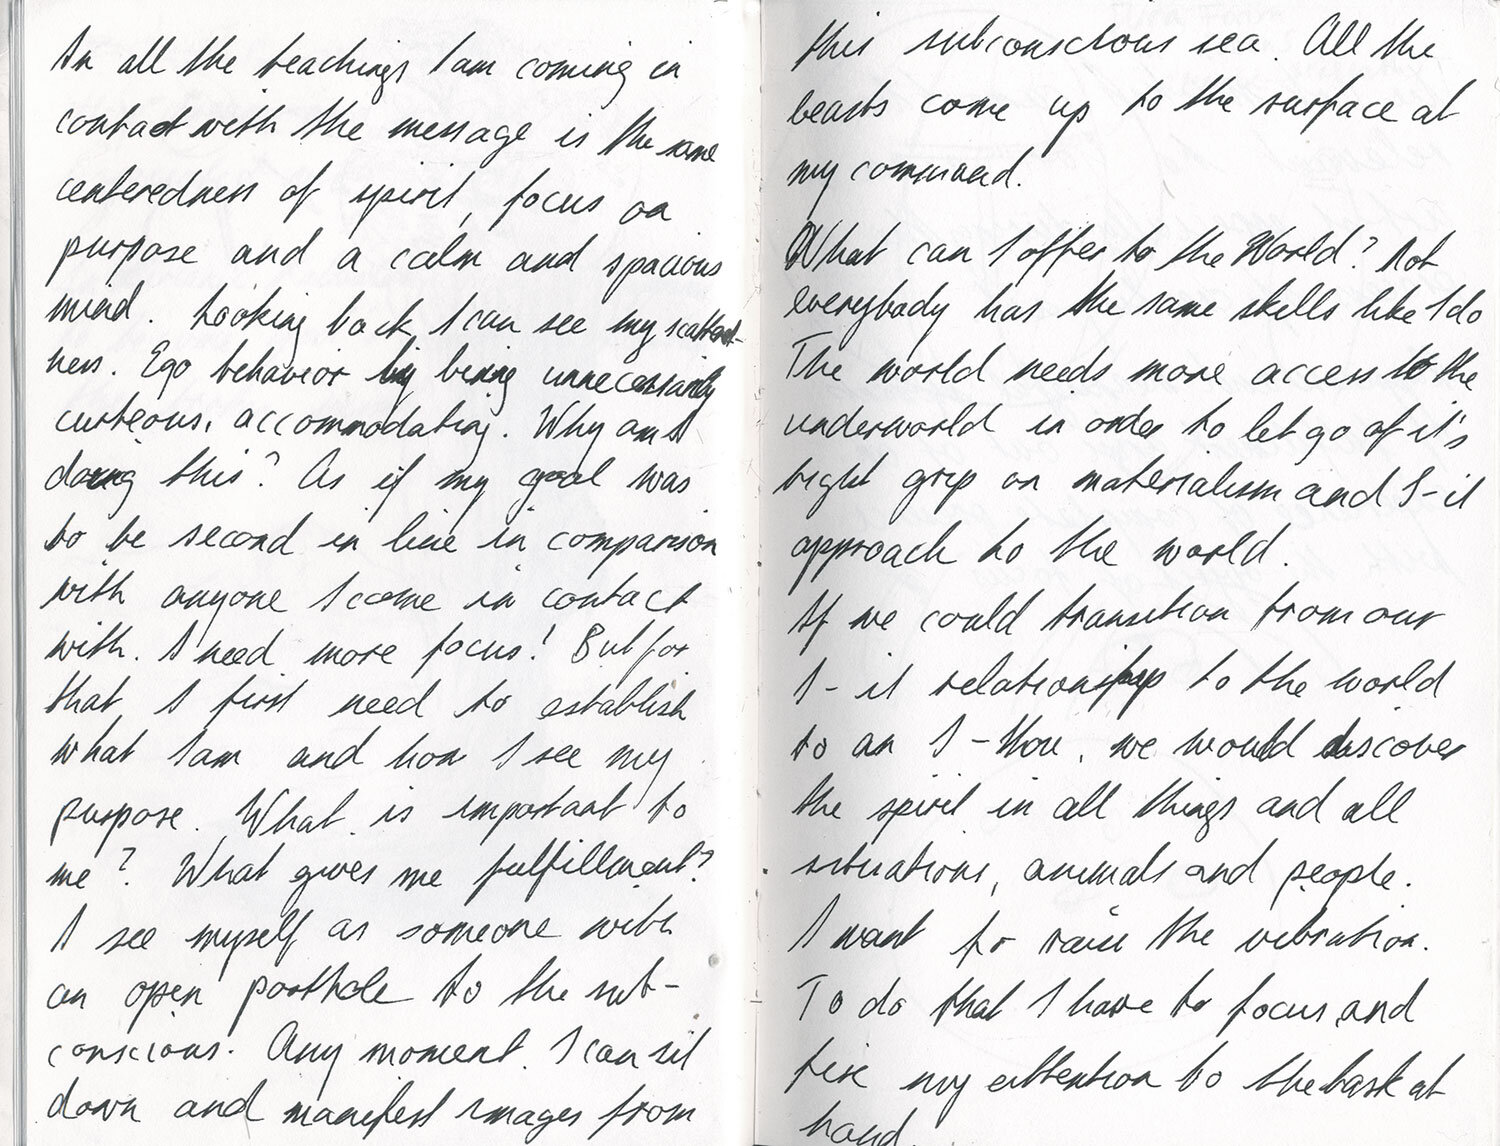 In all the teachings I am coming in
contact with the message is the same
centeredness of spirit, focus on
purpose and a calm and spacious
mind. Looking back I can see my scattered-
ness. Ego behavior by being unnecessarily
curteous, accommodating. Why am I
doing this? As if my goal was
to be second in line in comparison
with anyone I come in contact
with. I need more focus! But for
that I first need to establish
what I am and how I see my
purpose. What is important to
me? What gives me fulfillment?
I see myself as someone with
an open porthole to the sub-
conscious. Any moment I can sit
down and manifest images from
this subconscious sea. All the
beasts come up to the surface at
my command.
What can I offer to the World? Not
everybody has the same skills like I do
The world needs more access to the
underworld in order to let go of it's
tight grip on materialism and I-it
approach to the world.
If we could transition from our
I-it relationship to the world
to an I-thou, we would discover
the spirit in all things and all
situations, animals and people.
I want to raise the vibration.
To do that I have to focus and
fix my attention to the task at
hand.